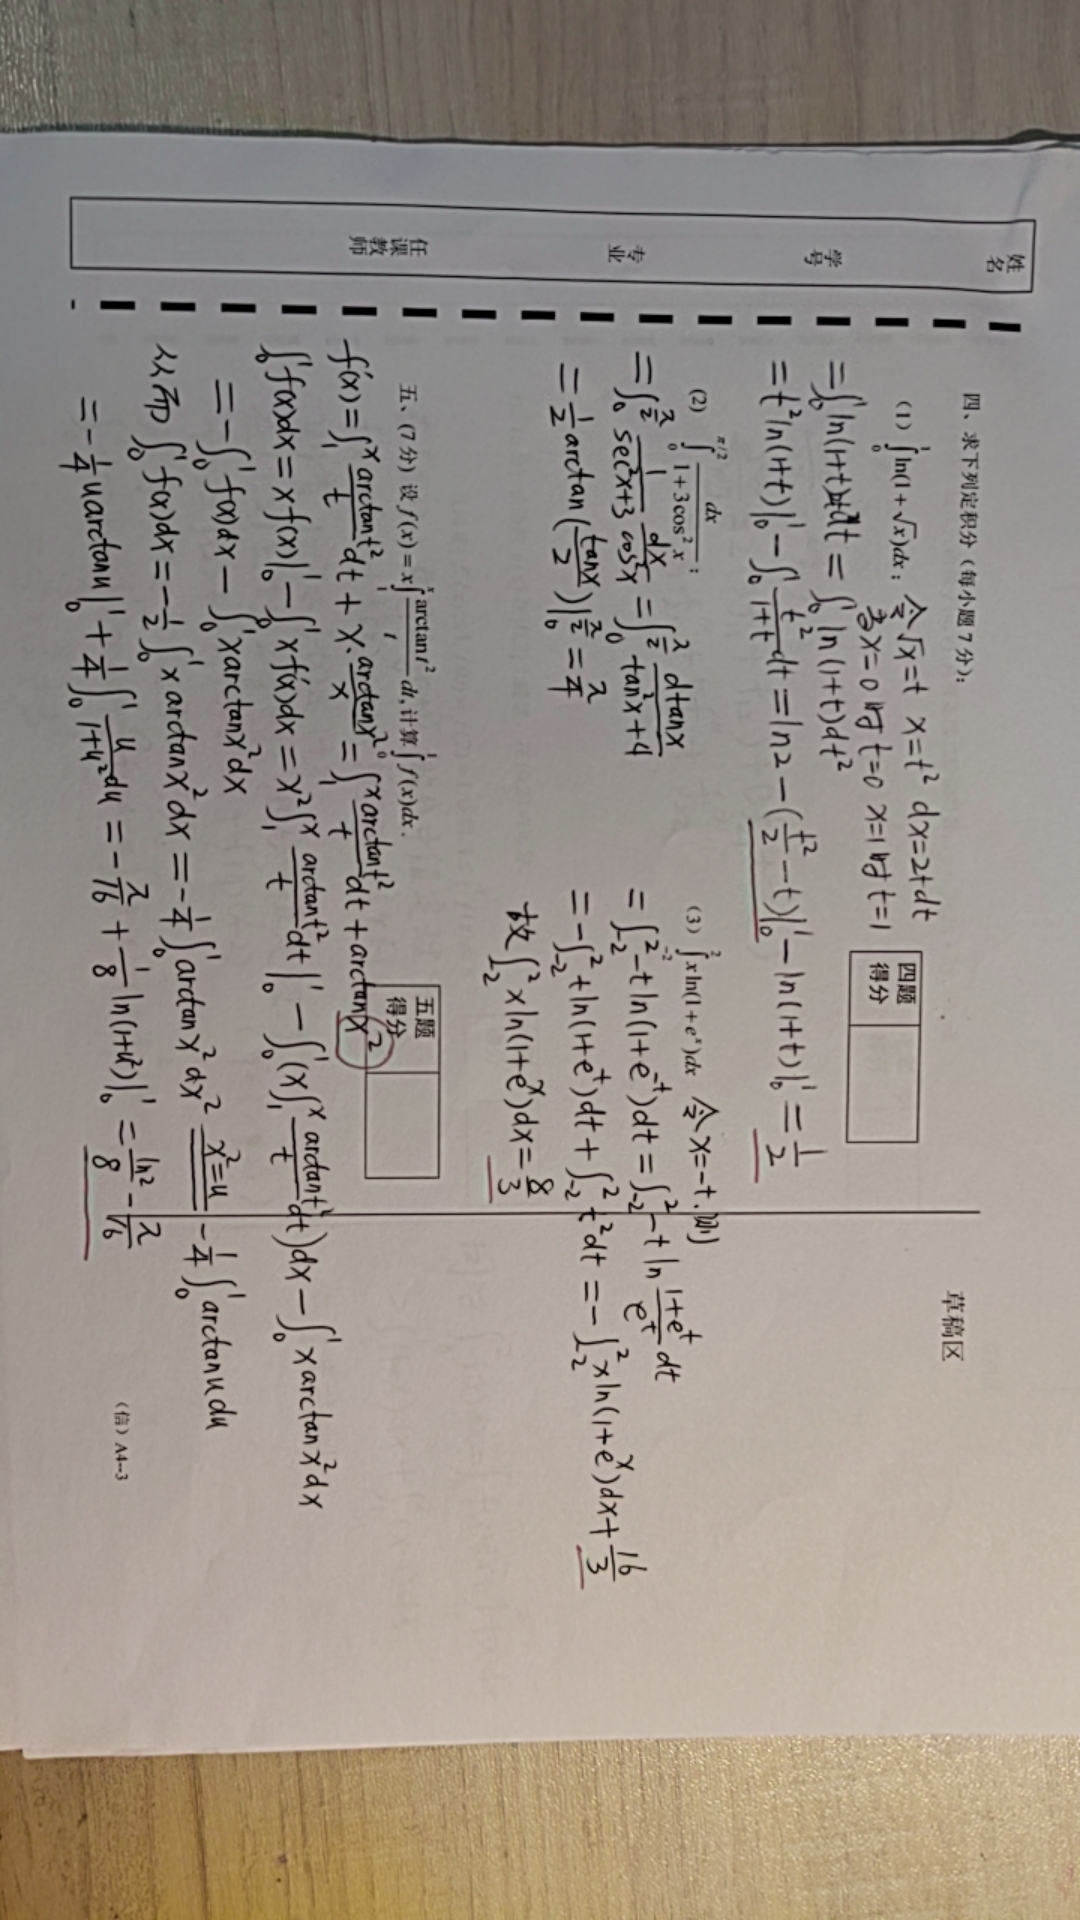 姓名
学号
专业
任课教师
四、求下列定积分（每小题 7 分）：
四题得分
草稿区
(1) ∫₀¹ ln(1+√x)dx； 令√x=t x=t² dx=2tdt
当x=0时t=0 x=1时t=1
=∫₀¹ ln(1+t)2tdt = ∫₀¹ ln(1+t)dt²
= t²ln(1+t)|₀¹ - ∫₀¹ t²/(1+t) dt = ln2 - (t²/2 - t)|₀¹ - ln(1+t)|₀¹ = 1/2
(2) ∫₀^(π/2) dx/(1+3cos²x)；
= ∫₀^(π/2) 1/(sec²x+3) dx/cos²x = ∫₀^(π/2) dtanx/(tan²x+4)
= 1/2 arctan(tanx/2)|₀^(π/2) = π/4
(3) ∫₋₂² xln(1+eˣ)dx 令x=-t.则
= ∫₋₂² -tln(1+e⁻ᵗ)dt = ∫₋₂² -t ln (1+eᵗ)/eᵗ dt
= -∫₋₂² tln(1+eᵗ)dt + ∫₋₂² t²dt = -∫₋₂² xln(1+eˣ)dx + 16/3
故 ∫₋₂² xln(1+eˣ)dx = 8/3
五、(7 分) 设 f(x) = x∫₁ˣ arctan t²/t dt, 计算 ∫₀¹ f(x)dx.
五题得分
f'(x) = ∫₁ˣ arctant²/t dt + x·arctanx²/x = ∫₁ˣ arctant²/t dt + arctanx²
∫₀¹ f(x)dx = xf(x)|₀¹ - ∫₀¹ xf'(x)dx = x²∫₁ˣ arctant²/t dt|₀¹ - ∫₀¹ (x∫₁ˣ arctant²/t dt)dx - ∫₀¹ xarctanx²dx
= -∫₀¹ f(x)dx - ∫₀¹ xarctanx²dx
从而 ∫₀¹ f(x)dx = -1/2 ∫₀¹ xarctanx²dx = -1/4 ∫₀¹ arctanx²dx² x²=u -1/4 ∫₀¹ arctanudu
= -1/4 uarctanu|₀¹ + 1/4 ∫₀¹ u/(1+u²) du = -π/16 + 1/8 ln(1+u²)|₀¹ = ln2/8 - π/16
（信）A4--3